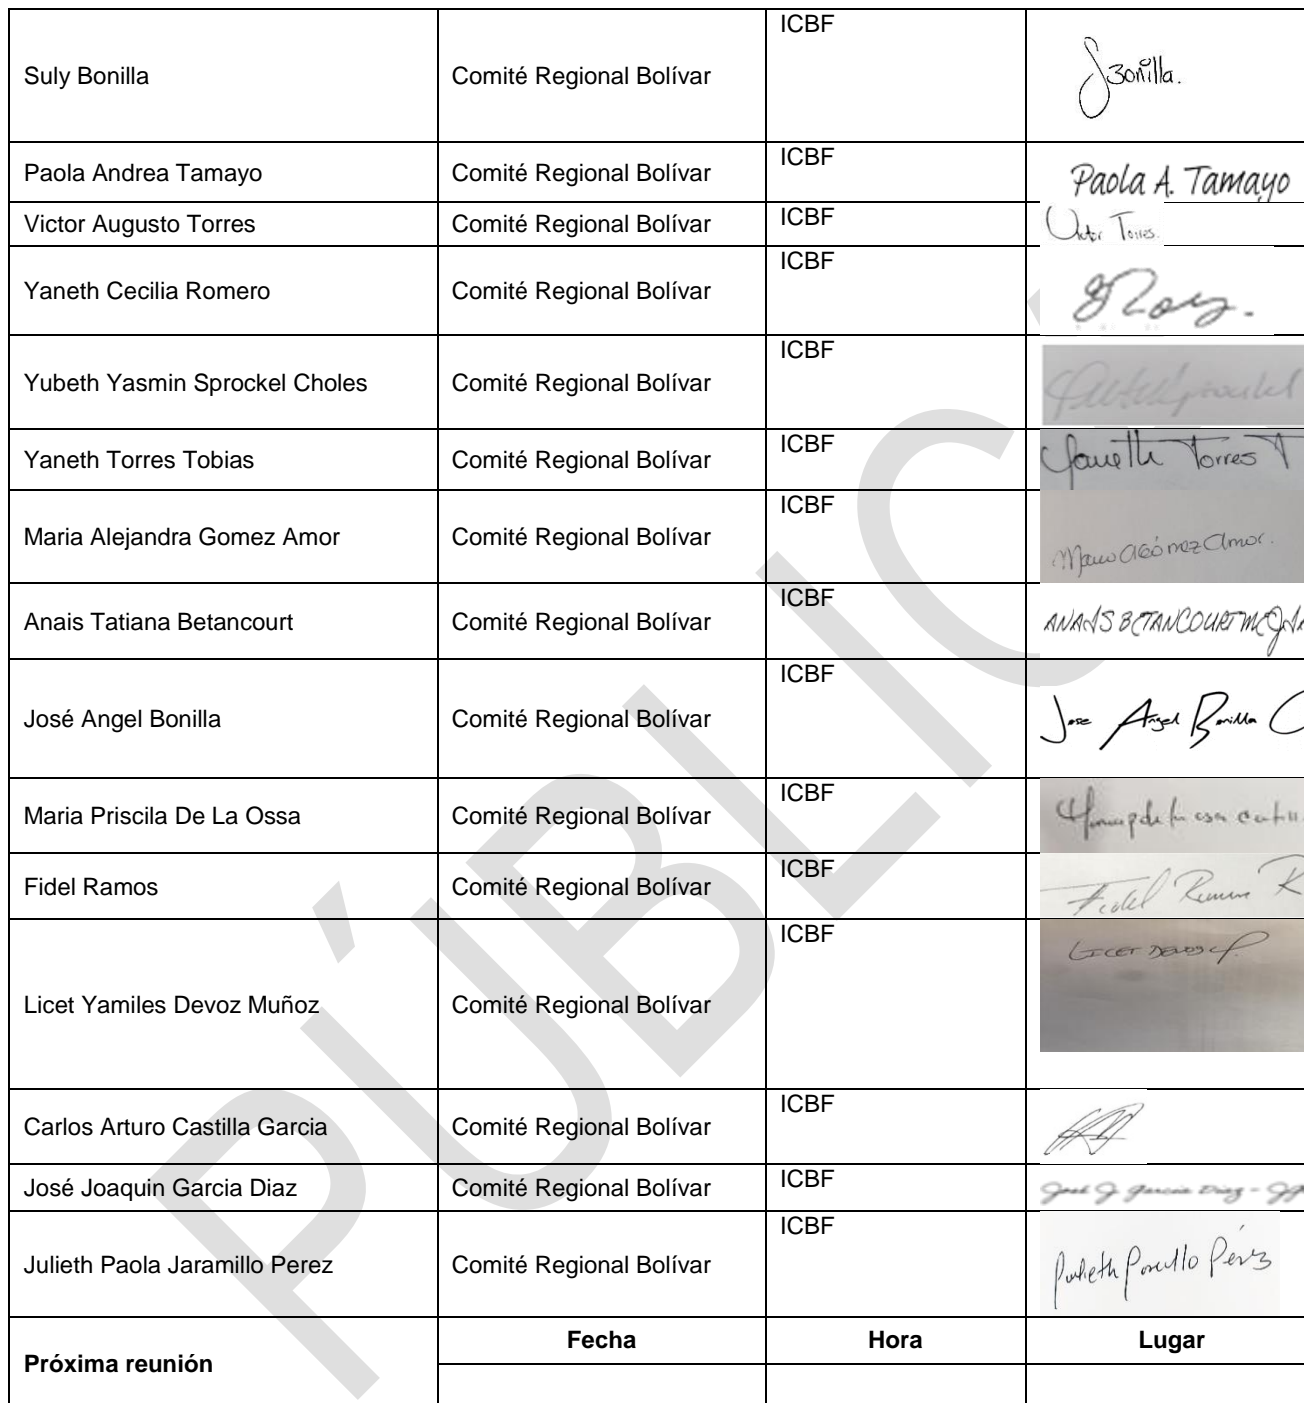 Suly Bonilla Comité Regional Bolívar ICBF SBonilla.
Paola Andrea Tamayo Comité Regional Bolívar ICBF Paola A. Tamayo
Victor Augusto Torres Comité Regional Bolívar ICBF Victor Torres.
Yaneth Cecilia Romero Comité Regional Bolívar ICBF
Yubeth Yasmin Sprockel Choles Comité Regional Bolívar ICBF
Yaneth Torres Tobias Comité Regional Bolívar ICBF Yaneth Torres T
Maria Alejandra Gomez Amor Comité Regional Bolívar ICBF Maria A Gómez Amor.
Anais Tatiana Betancourt Comité Regional Bolívar ICBF ANAIS BETANCOURT
José Angel Bonilla Comité Regional Bolívar ICBF Jose Angel Bonilla C
Maria Priscila De La Ossa Comité Regional Bolívar ICBF
Fidel Ramos Comité Regional Bolívar ICBF Fidel Ramos R
Licet Yamiles Devoz Muñoz Comité Regional Bolívar ICBF LICET DEVOZ
Carlos Arturo Castilla Garcia Comité Regional Bolívar ICBF
José Joaquin Garcia Diaz Comité Regional Bolívar ICBF José J. Garcia Diaz -
Julieth Paola Jaramillo Perez Comité Regional Bolívar ICBF Julieth Pérez
Próxima reunión Fecha Hora Lugar
PÚBLIC